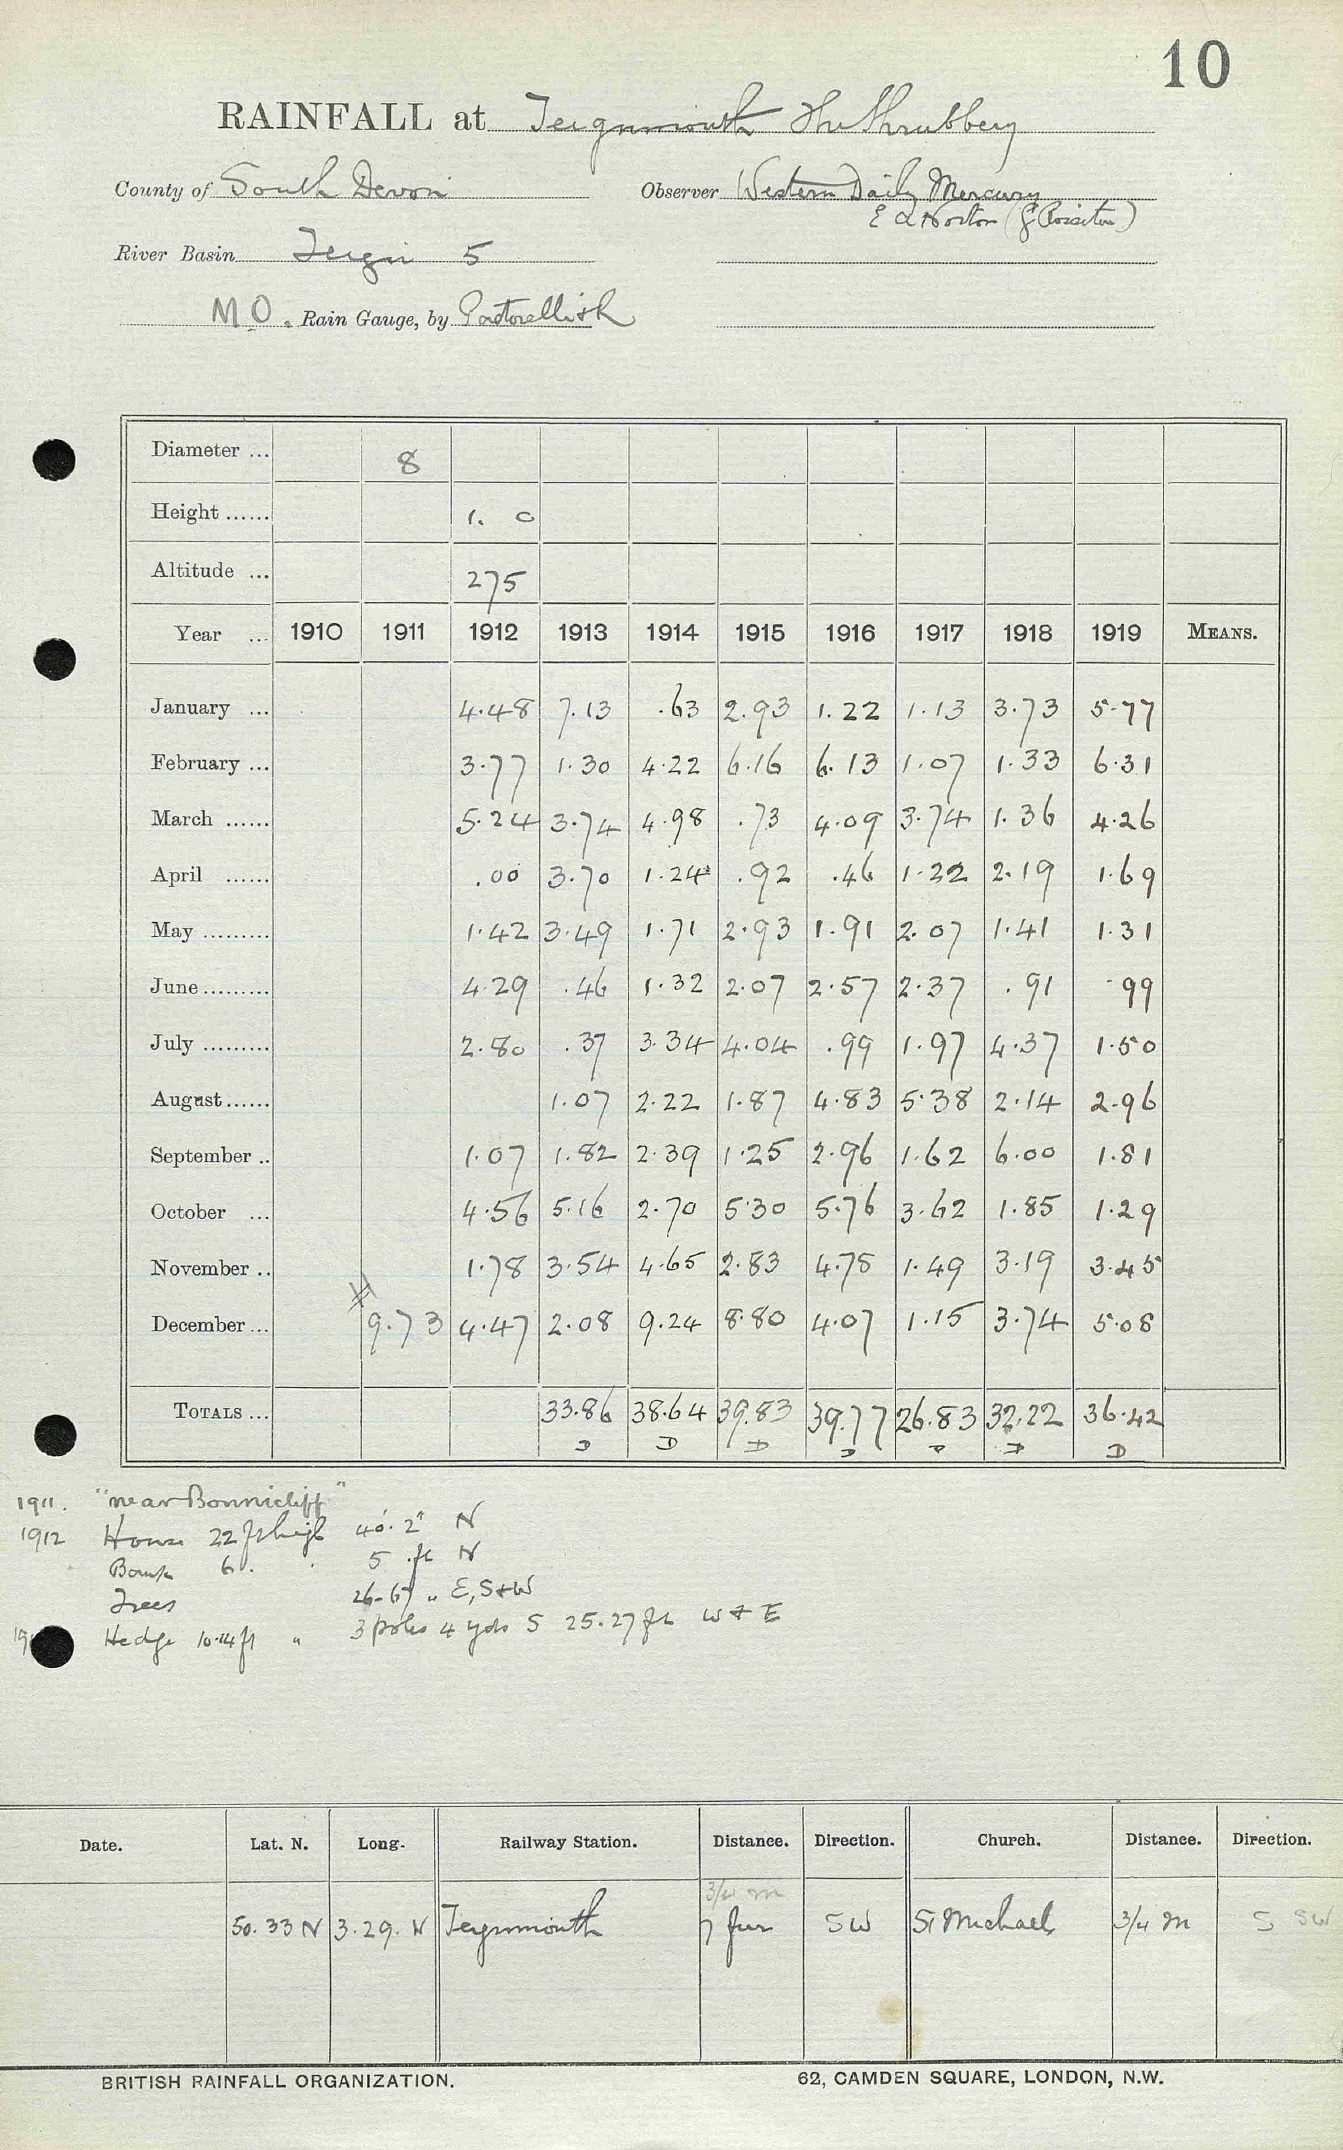 10
RAINFALL at Teignmouth The Shrubbery
County of South Devon Observer Western Daily Mercury
E Norton
River Basin Teign 5
M.O. Rain Gauge, by
Diameter ... 8
Height ...... 1. 0
Altitude ... 275
Year ... 1910 1911 1912 1913 1914 1915 1916 1917 1918 1919 MEANS.
January ... 4.48 7.13 .63 2.93 1.22 1.13 3.73 5.77
February ... 3.77 1.30 4.22 6.16 6.13 1.07 1.33 6.31
March ...... 5.24 3.74 4.98 .73 4.09 3.74 1.36 4.26
April ...... .00 3.70 1.24 .92 .46 1.22 2.19 1.69
May ......... 1.42 3.49 1.71 2.93 1.91 2.07 1.41 1.31
June ......... 4.29 .46 1.32 2.07 2.57 2.37 .91 .99
July ......... 2.80 .37 3.34 4.04 .99 1.97 4.37 1.50
August ...... 1.07 2.22 1.87 4.83 5.38 2.14 2.96
September .. 1.07 1.82 2.39 1.25 2.96 1.62 6.00 1.81
October ... 4.56 5.16 2.70 5.30 5.76 3.62 1.85 1.29
November .. 1.78 3.54 4.65 2.83 4.78 1.49 3.19 3.45
December ... 9.73 4.47 2.08 9.24 8.80 4.07 1.15 3.74 5.08
TOTALS ... 33.86 38.64 39.83 39.77 26.83 32.22 36.42
D D D D D D D
1911. "near Bonnicliff"
1912 House 22 ft high 40' 2" N
Bank 6 " 5 ft N
Trees 26-67 " E, S & W
Hedge 10.14 ft " 3 poles 4 yds S 25.27 ft W & E
Date. Lat. N. Long. Railway Station. Distance. Direction. Church. Distance. Direction.
3/4 m
50.33 N 3.29. W Teignmouth 7 fur SW St Michael 3/4 m S SW
BRITISH RAINFALL ORGANIZATION. 62, CAMDEN SQUARE, LONDON, N.W.